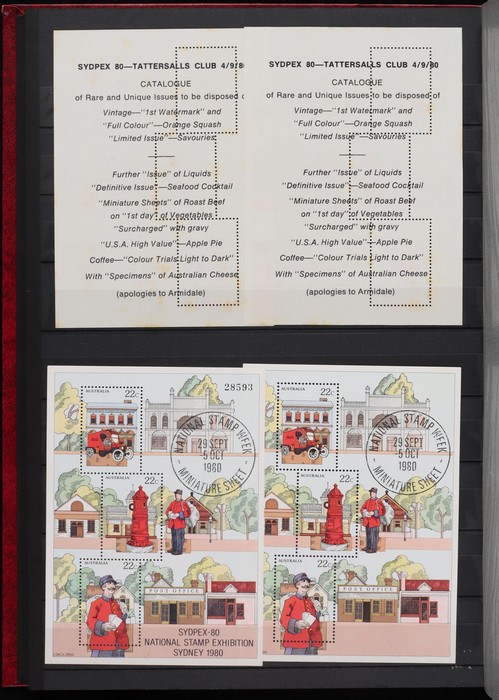 SYDPEX 80—TATTERSALLS CLUB 4/9/8
CATALOGUE
of Rare and Unique Issues to be disposed
Vintage—"1st Watermark" and
"Full Colour"—Orange Squash
"Limited Issue"—Savouries
Further "Issue" of Liquids
"Definitive Issue"—Seafood Cocktail
"Miniature Sheets" of Roast Beef
on "1st day" of Vegetables
"Surcharged" with gravy
"U.S.A. High Value"—Apple Pie
Coffee—"Colour Trials Light to Dark"
With "Specimens" of Australian Cheese
(apologies to Armidale)
SYDPEX 80—TATTERSALLS CLUB 4/9/80
CATALOGUE
of Rare and Unique Issues to be disposed of
Vintage—"1st Watermark" and
"Full Colour"—Orange Squash
"Limited Issue"—Savouries
Further "Issue" of Liquids
"Definitive Issue"—Seafood Cocktail
"Miniature Sheets" of Roast Beef
on "1st day" of Vegetables
"Surcharged" with gravy
"U.S.A. High Value"—Apple Pie
Coffee—"Colour Trials Light to Dark"
With "Specimens" of Australian Cheese
(apologies to Armidale)
28593
AUSTRALIA
22c
NATIONAL STAMP WEEK
29 SEPT
5 OCT
1980
- MINIATURE SHEET -
22c
AUSTRALIA
AUSTRALIA
22c
POST OFFICE
SYDPEX-80
NATIONAL STAMP EXHIBITION
SYDNEY 1980
AUSTRALIA
22c
NATIONAL STAMP WEEK
29 SEPT
5 OCT
1980
- MINIATURE SHEET -
22c
AUSTRALIA
AUSTRALIA
22c
POST OFFICE